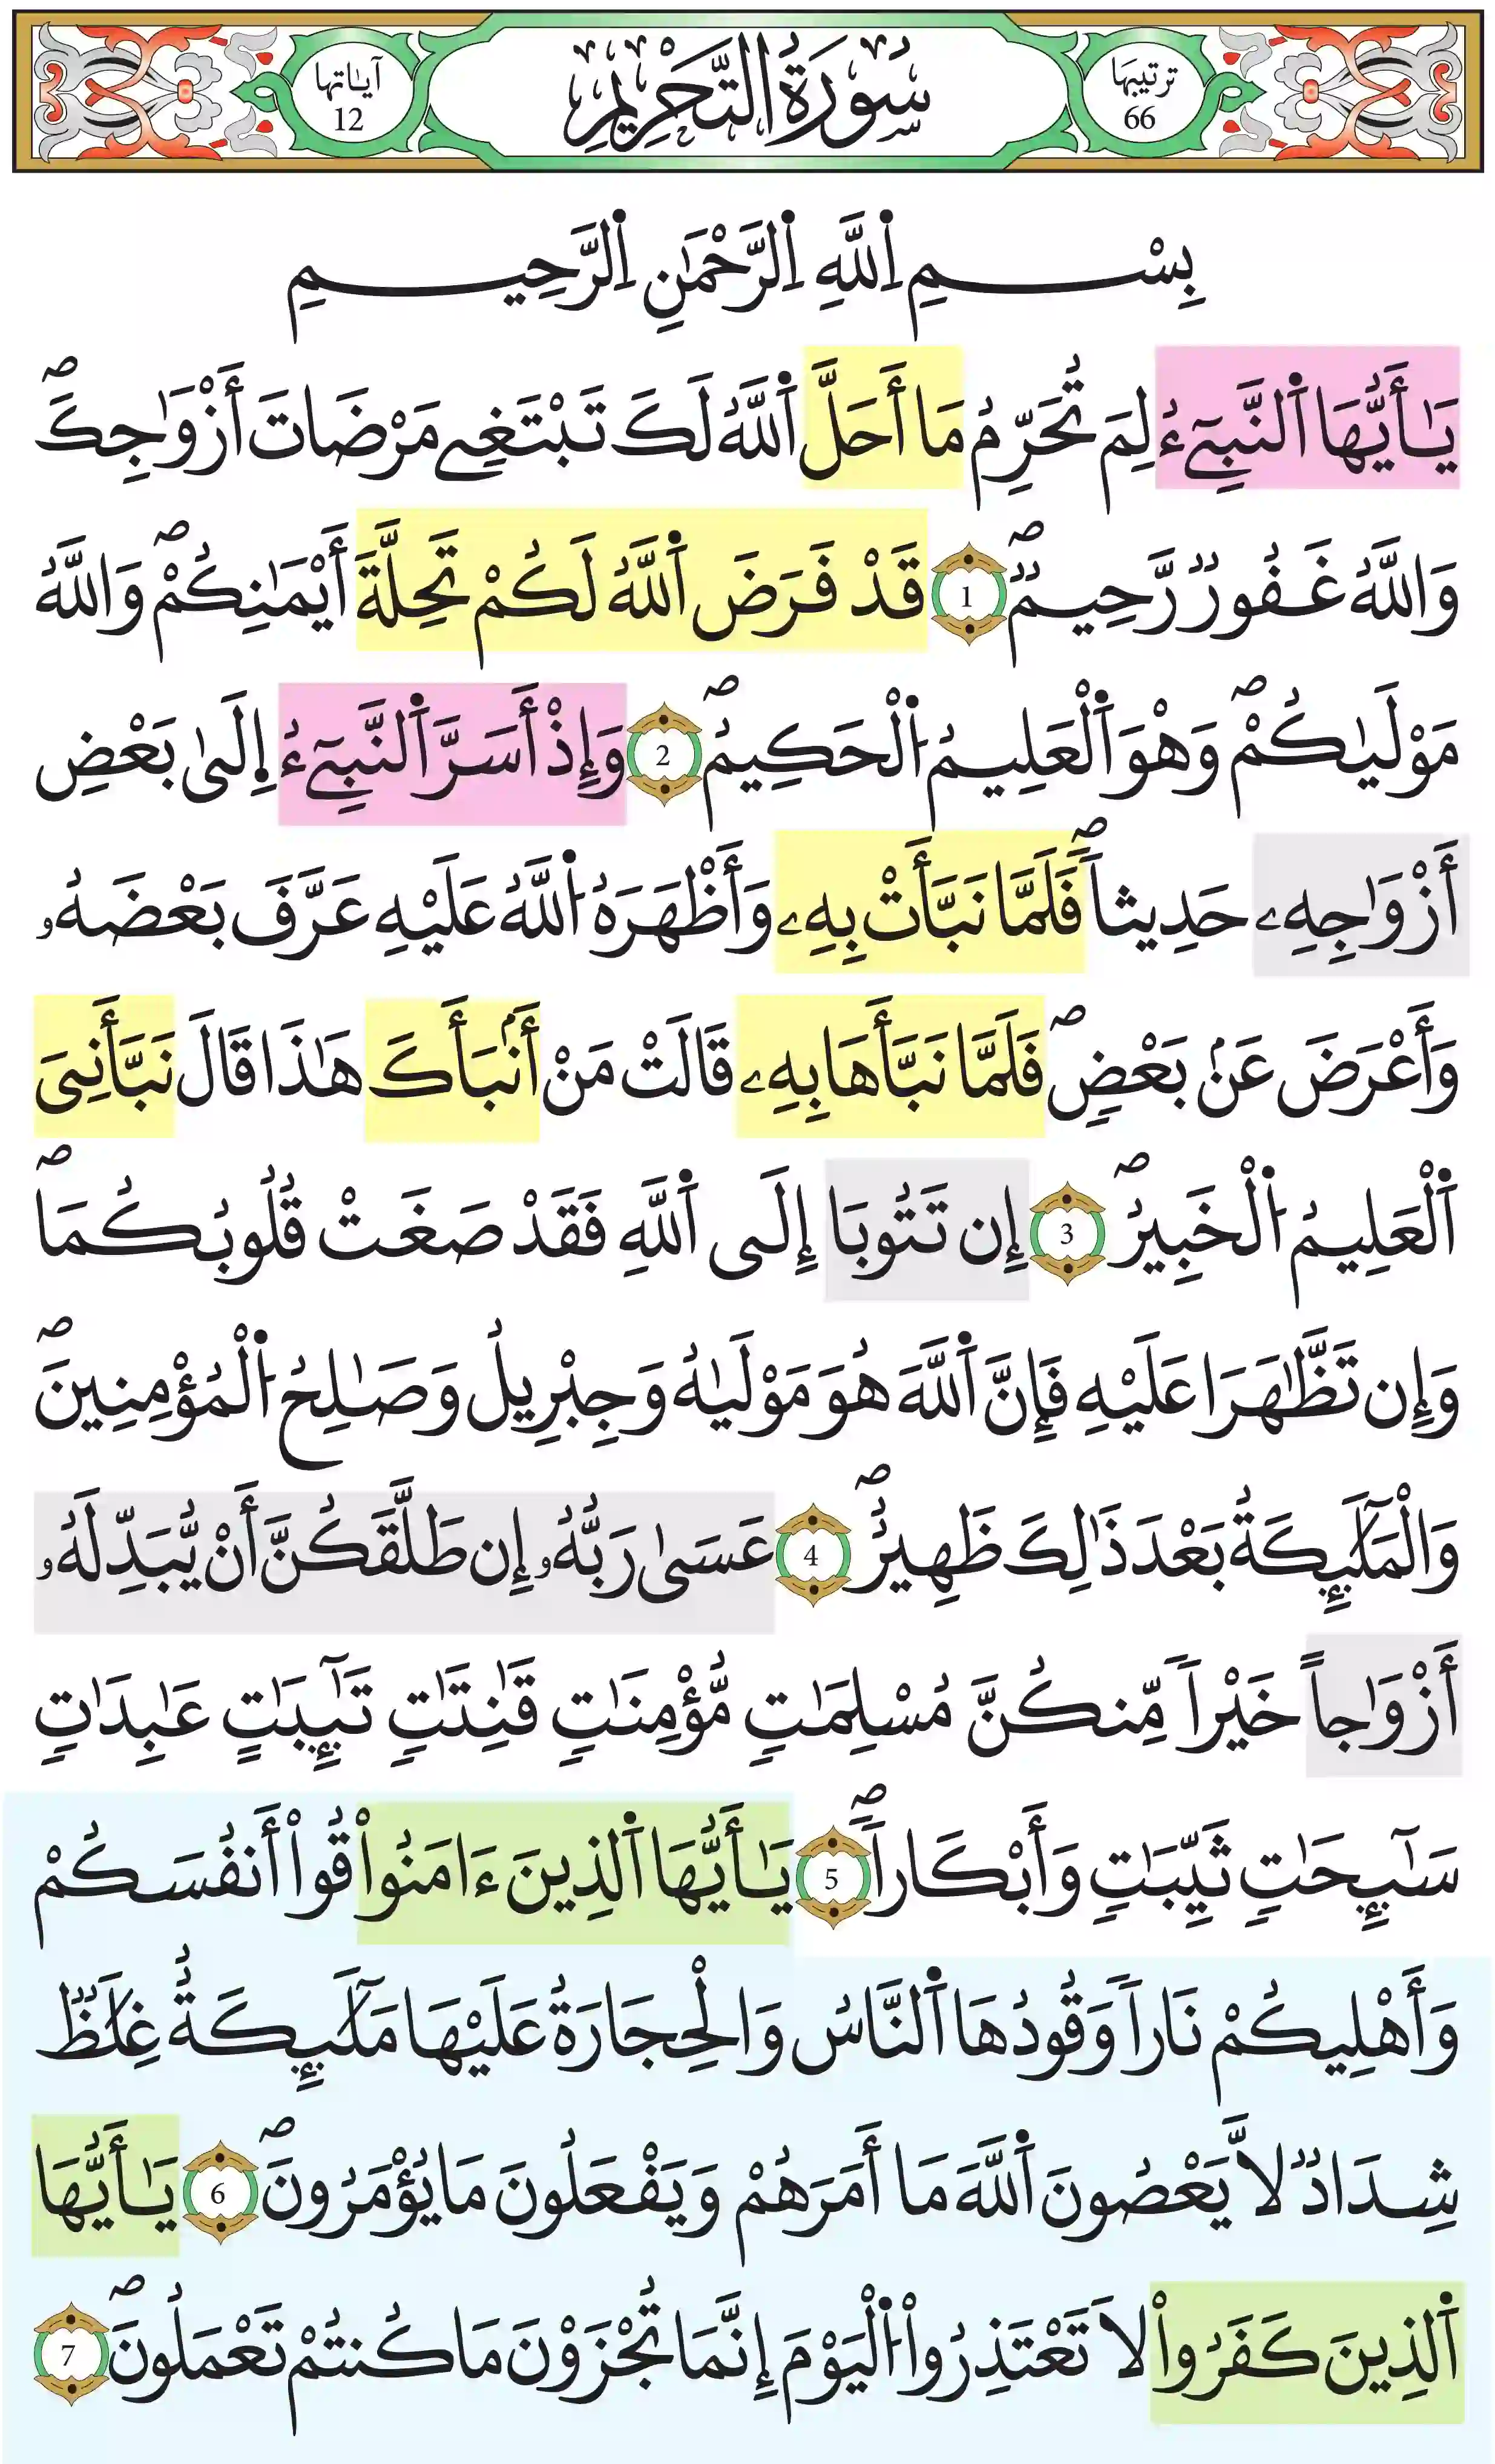 ترتيبها
66
سُورَةُ التَّحْرِيمِ
آياتها
12
بِسْمِ اِ۬للَّهِ اِ۬لرَّحْمَٰنِ اِ۬لرَّحِيمِ
يَـٰٓأَيُّهَا اَ۬لنَّبِےٓءُ لِمَ تُحَرِّمُ مَا أَحَلَّ اَ۬للَّهُ لَكَ تَبْتَغِے مَرْضَاتَ أَزْوَٰجِكَۖ
وَاللَّهُ غَفُورٞ رَّحِيمٞۖ 1 قَدْ فَرَضَ اَ۬للَّهُ لَكُمْ تَحِلَّةَ أَيْمَٰنِكُمْۖ وَاللَّهُ
مَوْلَيٰكُمْۖ وَهْوَ اَ۬لْعَلِيمُ اُ۬لْحَكِيمُۖ 2 وَإِذْ أَسَرَّ اَ۬لنَّبِےٓءُ اِ۪لَىٰ بَعْضِ
أَزْوَٰجِهِۦ حَدِيثاٗۖ فَلَمَّا نَبَّأَتْ بِهِۦ وَأَظْهَرَهُ اُ۬للَّهُ عَلَيْهِ عَرَّفَ بَعْضَهُۥ
وَأَعْرَضَ عَنۢ بَعْضٖۖ فَلَمَّا نَبَّأَهَا بِهِۦ قَالَتْ مَنْ أَنۢبَأَكَ هَٰذَا قَالَ نَبَّأَنِيَ
اَ۬لْعَلِيمُ اُ۬لْخَبِيرُۖ 3 إِن تَتُوبَا إِلَى اَ۬للَّهِ فَقَدْ صَغَتْ قُلُوبُكُمَاۖ
وَإِن تَظَّٰهَرَا عَلَيْهِ فَإِنَّ اَ۬للَّهَ هُوَ مَوْلَيٰهُ وَجِبْرِيلُ وَصَٰلِحُ اُ۬لْمُؤْمِنِينَۖ
وَالْمَلَٰٓئِكَةُ بَعْدَ ذَٰلِكَ ظَهِيرٌۖ 4 عَسَىٰ رَبُّهُۥ إِن طَلَّقَكُنَّ أَنْ يُّبَدِّلَهُۥ
أَزْوَٰجاً خَيْراٗ مِّنكُنَّ مُسْلِمَٰتٖ مُّؤْمِنَٰتٖ قَٰنِتَٰتٖ تَٰٓئِبَٰتٍ عَٰبِدَٰتٖ
سَٰٓئِحَٰتٖ ثَيِّبَٰتٖ وَأَبْكَاراٗۖ 5 يَـٰٓأَيُّهَا اَ۬لذِينَ ءَامَنُواْ قُواْ أَنفُسَكُمْ
وَأَهْلِيكُمْ نَاراٗ وَقُودُهَا اَ۬لنَّاسُ وَالْحِجَارَةُ عَلَيْهَا مَلَٰٓئِكَةٌ غِلَٰظٞ
شِدَادٞ لاَّ يَعْصُونَ اَ۬للَّهَ مَا أَمَرَهُمْ وَيَفْعَلُونَ مَا يُؤْمَرُونَۖ 6 يَـٰٓأَيُّهَا
اَ۬لذِينَ كَفَرُواْ لاَ تَعْتَذِرُواْ اُ۬لْيَوْمَ إِنَّمَا تُجْزَوْنَ مَا كُنتُمْ تَعْمَلُونَۖ 7